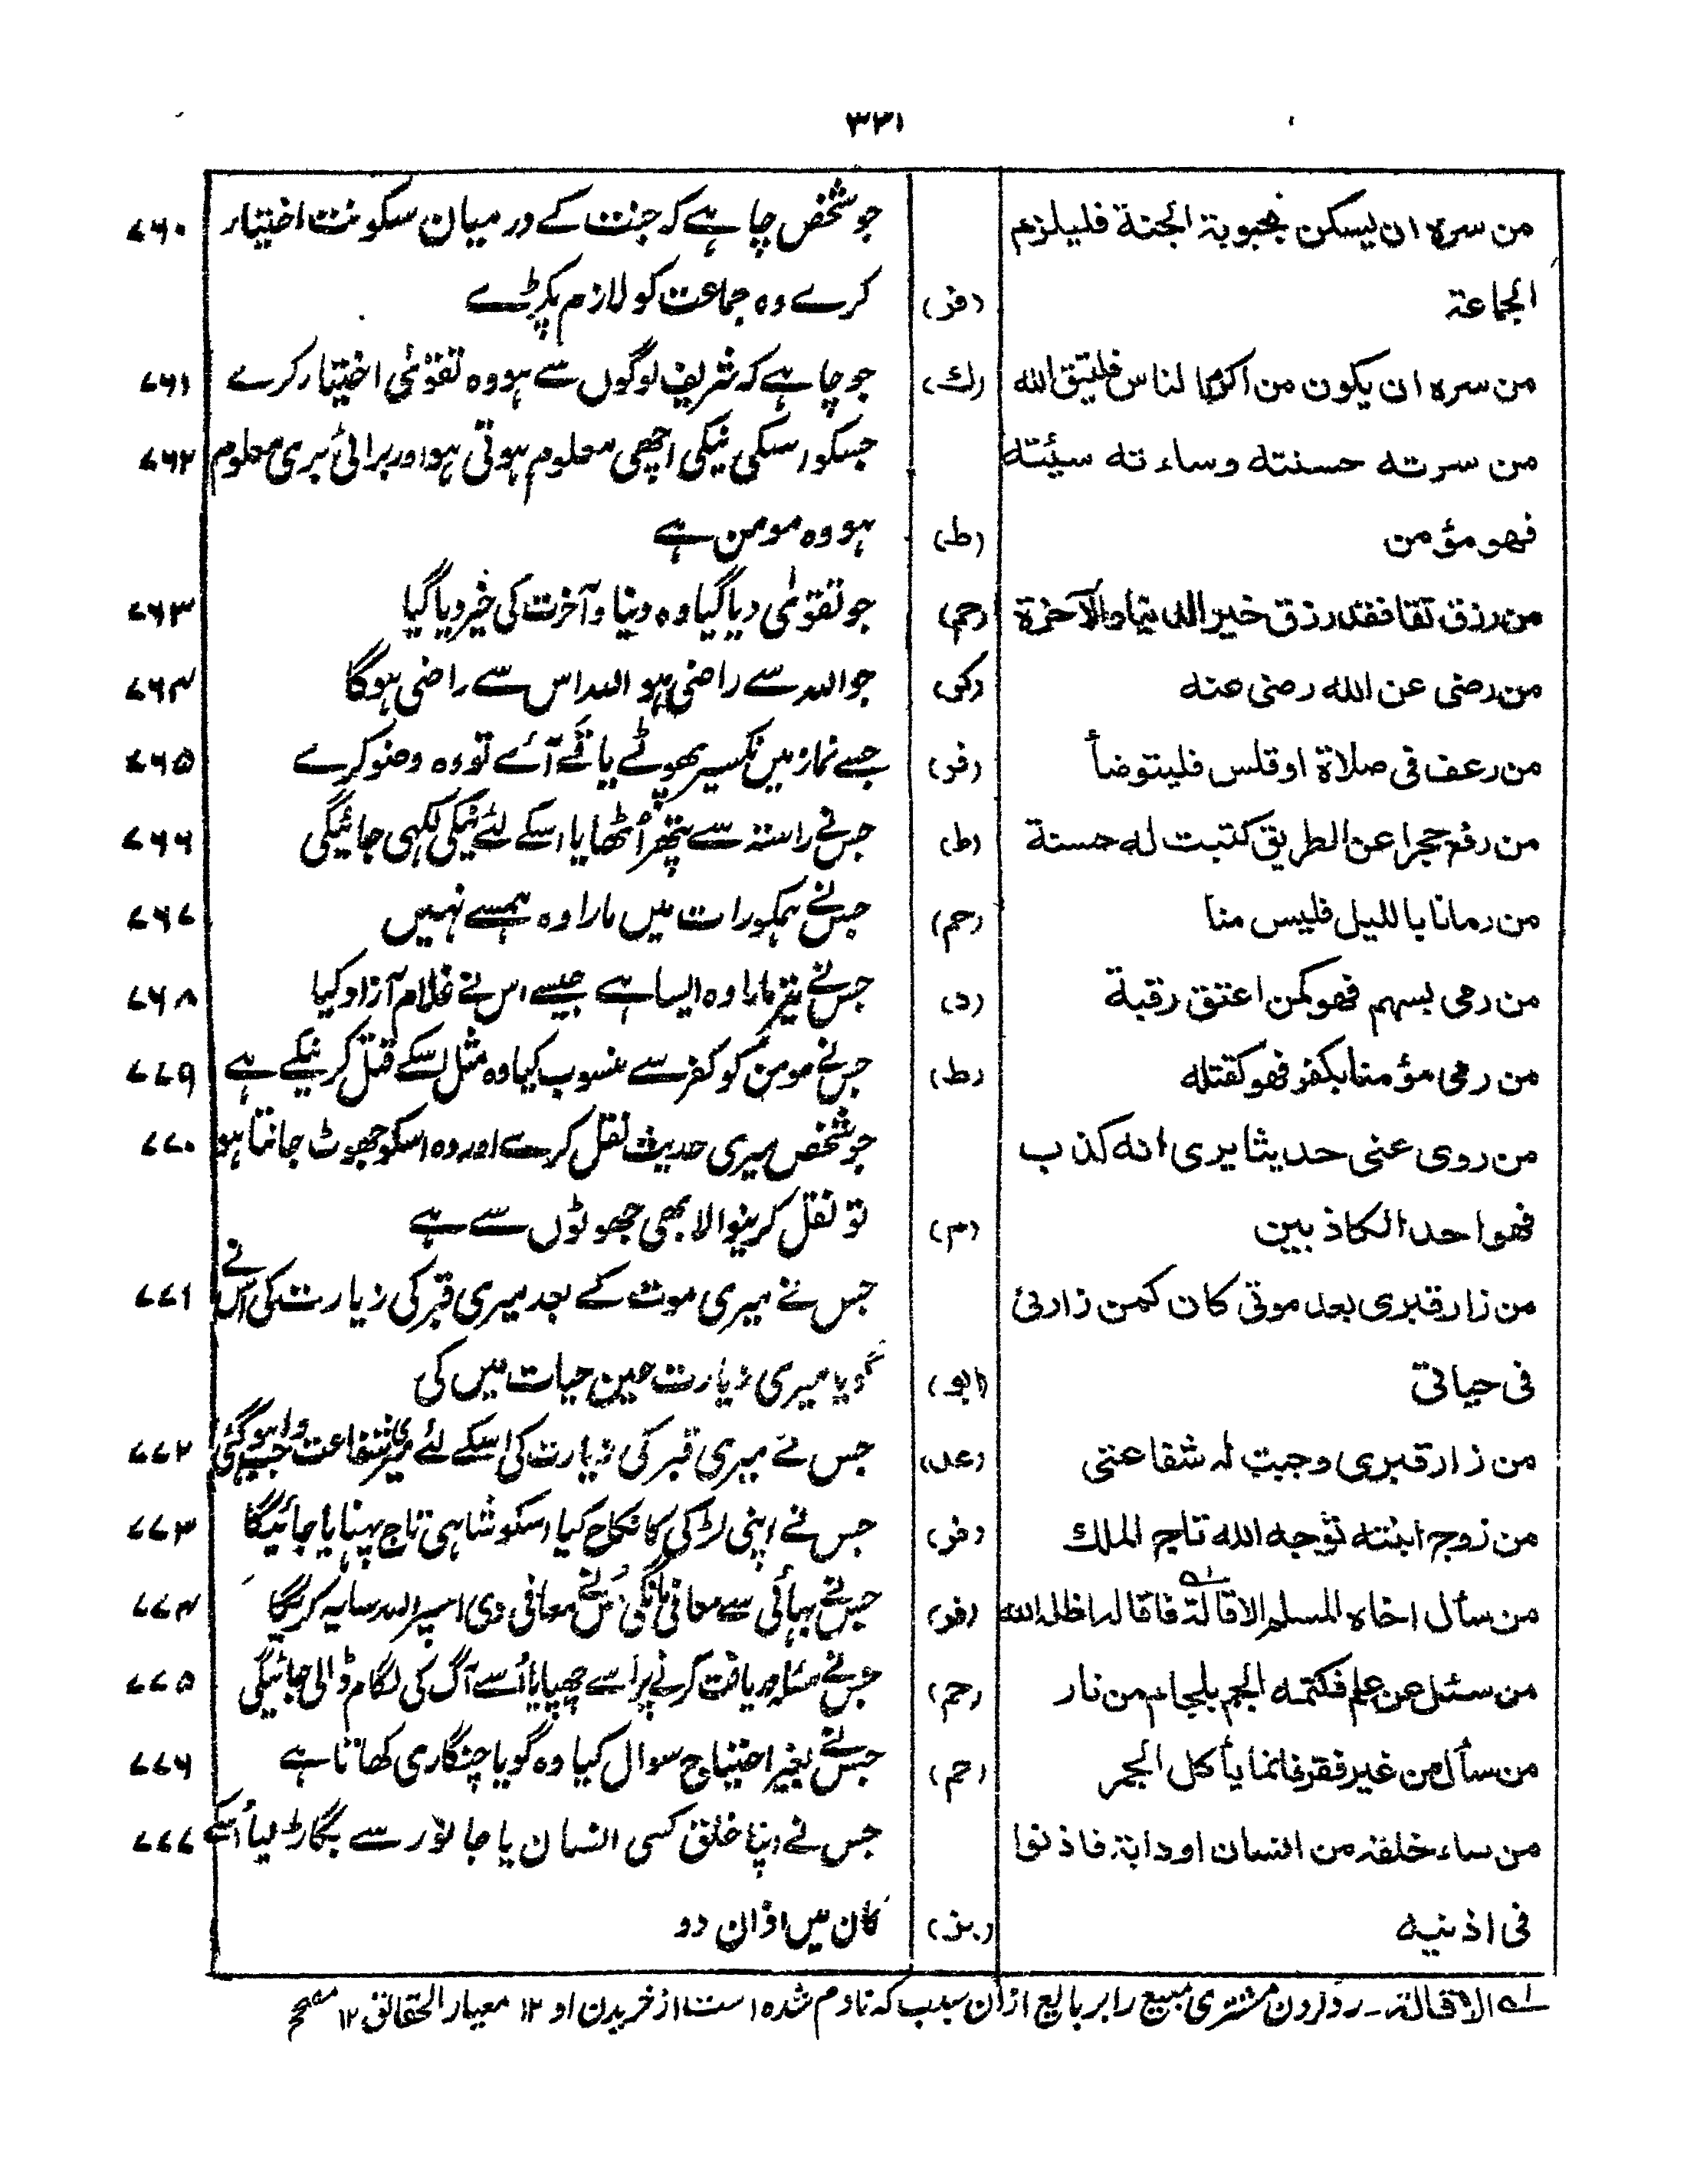 ۳۳۱
من سرہ ان یسکن بحبوبة الجنة فلیلزم جو شخص چاہے کہ جنت کے درمیان سکونت اختیار ۷۶۰
الجماعة (فر) کرے وہ جماعت کو لازم پکڑے
من سرہ ان یکون من اکرم الناس فلیتق اللہ (ك) جو چاہے کہ شریف لوگوں سے ہو وہ تقوٰی اختیار کرے ۷۶۱
من سرتہ حسنتہ وساءتہ سیئتہ جسکو اسکی نیکی اچھی معلوم ہوتی ہو اور برائی بری معلوم ۷۶۲
فهو مؤمن (ط) ہو وہ مومن ہے
من رزق تقا فقد رزق خیر الدنیا والآخرة (حم) جو تقوٰی دیا گیا وہ دنیا و آخرت کی خیر دیا گیا ۷۶۳
من رضی عن اللہ رضی عنہ (کی) جو اللہ سے راضی ہو اللہ اس سے راضی ہوگا ۷۶۴
من رعف فی صلاة او قلس فلیتوضأ (فر) جسے نماز میں نکسیر پھوٹے یا قے آئے تو وہ وضو کرے ۷۶۵
من رفع حجرا عن الطریق کتبت لہ حسنة (ط) جس نے راستہ سے پتھر اُٹھایا اسکے لئے نیکی لکہی جائیگی ۷۶۶
من رمانا باللیل فلیس منا (حم) جس نے ہمکو رات میں مارا وہ ہمسے نہیں ۷۶۷
من رمی بسہم فهو کمن اعتق رقبة (د) جس نے تیر مارا وہ ایسا ہے جیسے اس نے غلام آزاد کیا ۷۶۸
من رمی مؤمنا بکفر فهو کقتلہ (ط) جس نے مومن کو کفر سے منسوب کیا وہ مثل اسکے قتل کرنیکے ہے ۷۶۹
من روی عنی حدیثا یری انہ کذب جو شخص میری حدیث نقل کرے اور وہ اسکو جھوٹ جانتا ہو ۷۷۰
فهو احد الکاذبین (م) تو نقل کرنیوالا بھی جھوٹوں سے ہے
من زار قبری بعد موتی کان کمن زارنی جس نے میری موت کے بعد میری قبر کی زیارت کی اس نے ۷۷۱
فی حیاتی (ابو) گویا میری زیارت حین حیات میں کی
من زار قبری وجبت لہ شفاعتی (عد) جس نے میری قبر کی زیارت کی اسکے لئے میری شفاعت واجب ہوگئی ۷۷۲
من زوج ابنتہ توجہ اللہ تاج الملك (فر) جس نے اپنی لڑکی کا نکاح کیا اسکو شاہی تاج پہنایا جائیگا ۷۷۳
من سأل اخاہ المسلم الاقالة لہ فاقالہ اظلہ اللہ (فر) جس نے بہائی سے معافی مانگی اُس نے معافی دی اسپر اللہ سایہ کریگا ۷۷۴
من سئل عن علم فکتمہ الجم بلجام من نار (حم) جس نے مسئلہ دریافت کرنے پر اُسے چھپایا اُسے آگ کی لگام ڈالی جائیگی ۷۷۵
من سأل من غیر فقر فانما یأکل الجمر (حم) جس نے بغیر احتیاج سوال کیا وہ گویا چنگاری کھاتا ہے ۷۷۶
من ساء خلقہ من انسان او دابة فاذنوا جس نے اپنا خلق کسی انسان یا جانور سے بگاڑ لیا اُسکے ۷۷۷
فی اذنیہ کان میں اذان دو
لہ الاقالة۔ رد کردن مشتری مبیع را بر بائع ازاں سبب کہ نادم شدہ است از خریدن او ۱۲ معیار الحقائق ۱۲ مصحح